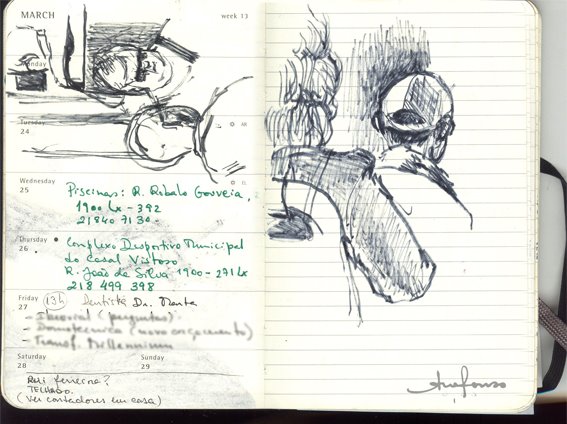 MARCH week 13
Monday
Tuesday
24
Wednesday
25
Piscinas: R. Robalo Gouveia,
1900 Lx - 392
21840 7130
Thursday
26
Complexo Desportivo Municipal
do Casal Vistoso
R. João da Silva 1900 - 271 Lx
218 499 398
Friday
27
13h Dentista Dr.
- (perguntas)
- Domotecnica (novo orçamento)
- Transf. Millennium
Saturday
28
Sunday
29
Rui Ferreira?
TELHADO.
(Ver contadores em casa)